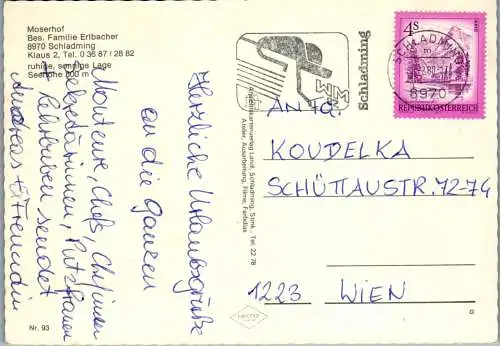 Moserhof
Bes. Familie Erlbacher
8970 Schladming
Klaus 2, Tel. 0 36 87 / 28 82
ruhige, sonnige Lage
Seehöhe 800 m
Herzliche Urlaubsgrüße
an die ganzen
Monteure, Chefs, Chefinnen
Sekretärinnen, Putzfrauen
+ Lehrbuben sendet
Andreas + Freundin
Nr. 93
Schladming, Stmk., Tel. 22 78
Atelier, Ausarbeitung, Filme, Farbdias
WM
Schladming
SCHLADMING
8970
4 S
REPUBLIK ÖSTERREICH
AN FA.
KOUDELKA
SCHÜTTAUSTR. 72-74
1223 WIEN